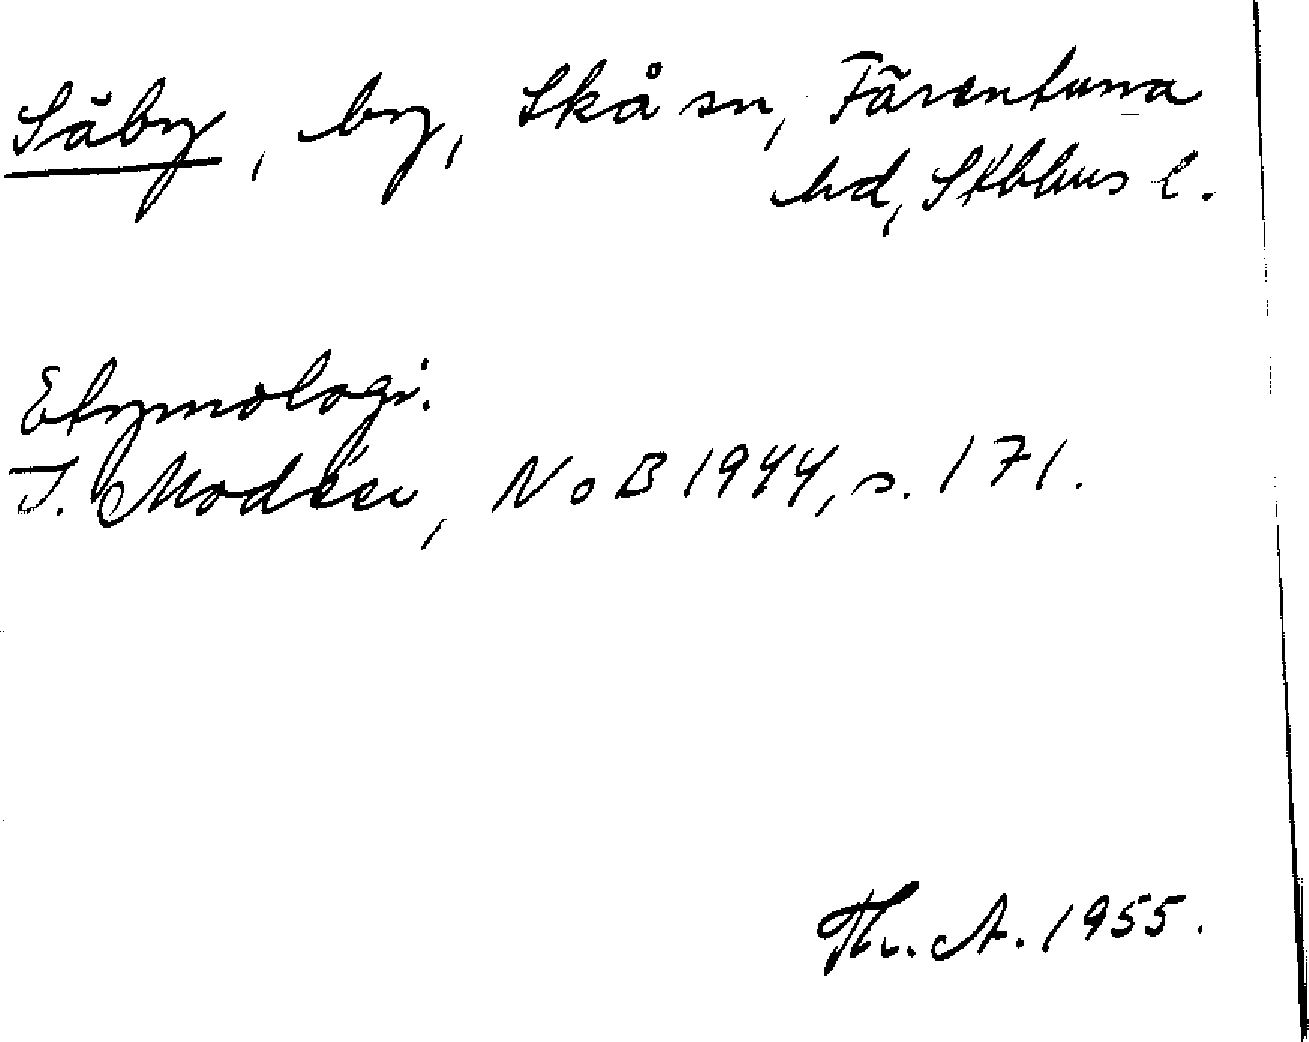 Säby, by, Skå sn, Färentuna
hd, Sthlms l.
Etymologi:
I. Modéer, NoB 1944, s. 171.
Th. A. 1955.